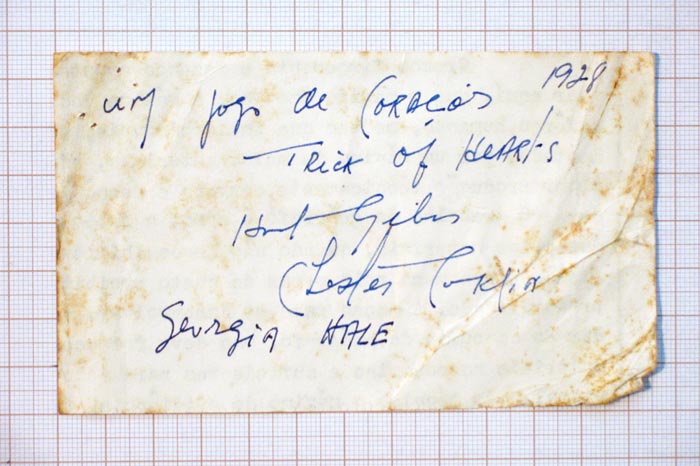 um jogo de Corações 1928
Trick of Hearts
Hoot Gibson
Chester Conklin
Georgia HALE